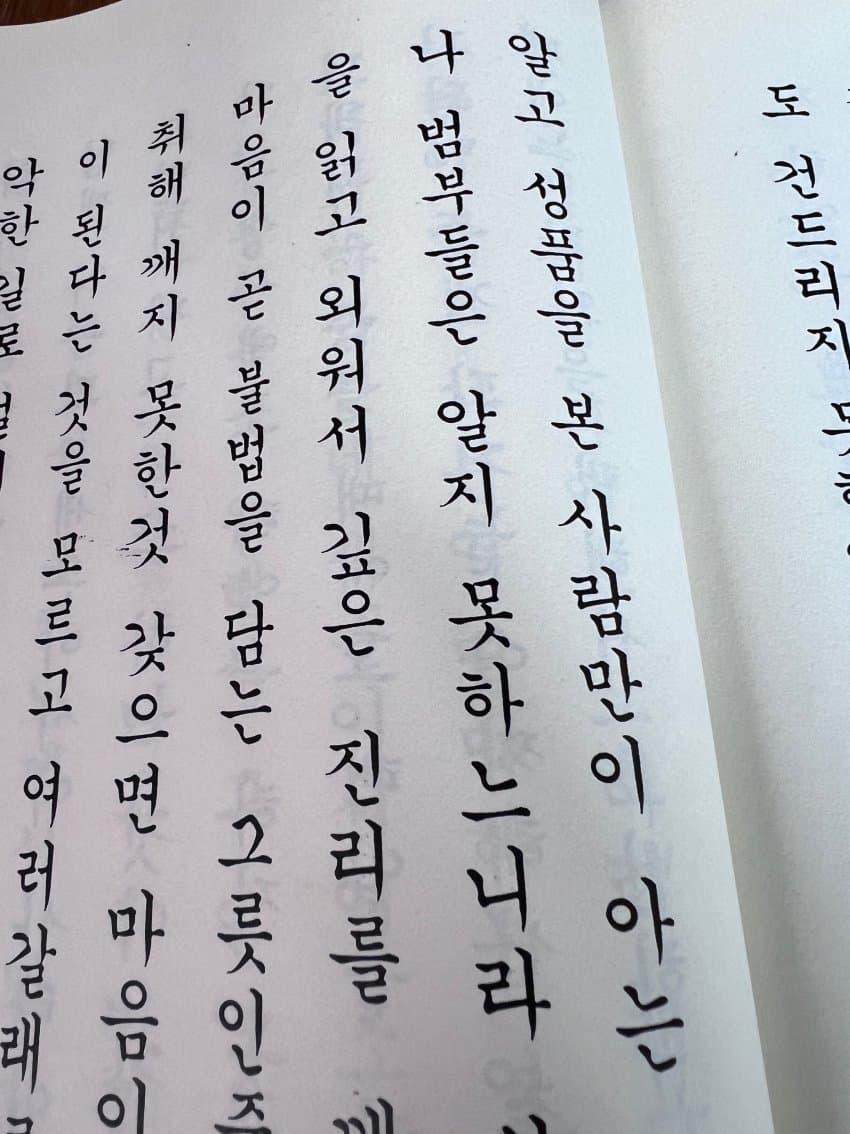 도 건드리지 못
알고 성품을 본 사람만이 아는
나 범부들은 알지 못하느니라
을 읽고 외워서 깊은 진리를 깨
마음이 곧 불법을 담는 그릇인
취해 깨지 못한것 갖으면 마음이
이 된다는 것을 모르고 여러갈래
악한 일로